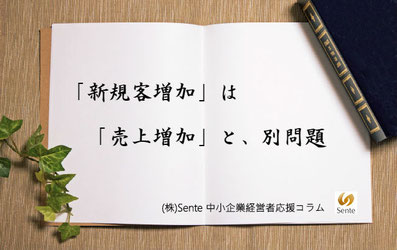 「新規客増加」は
「売上増加」と、別問題
(株)Sente 中小企業経営者応援コラム
Sente